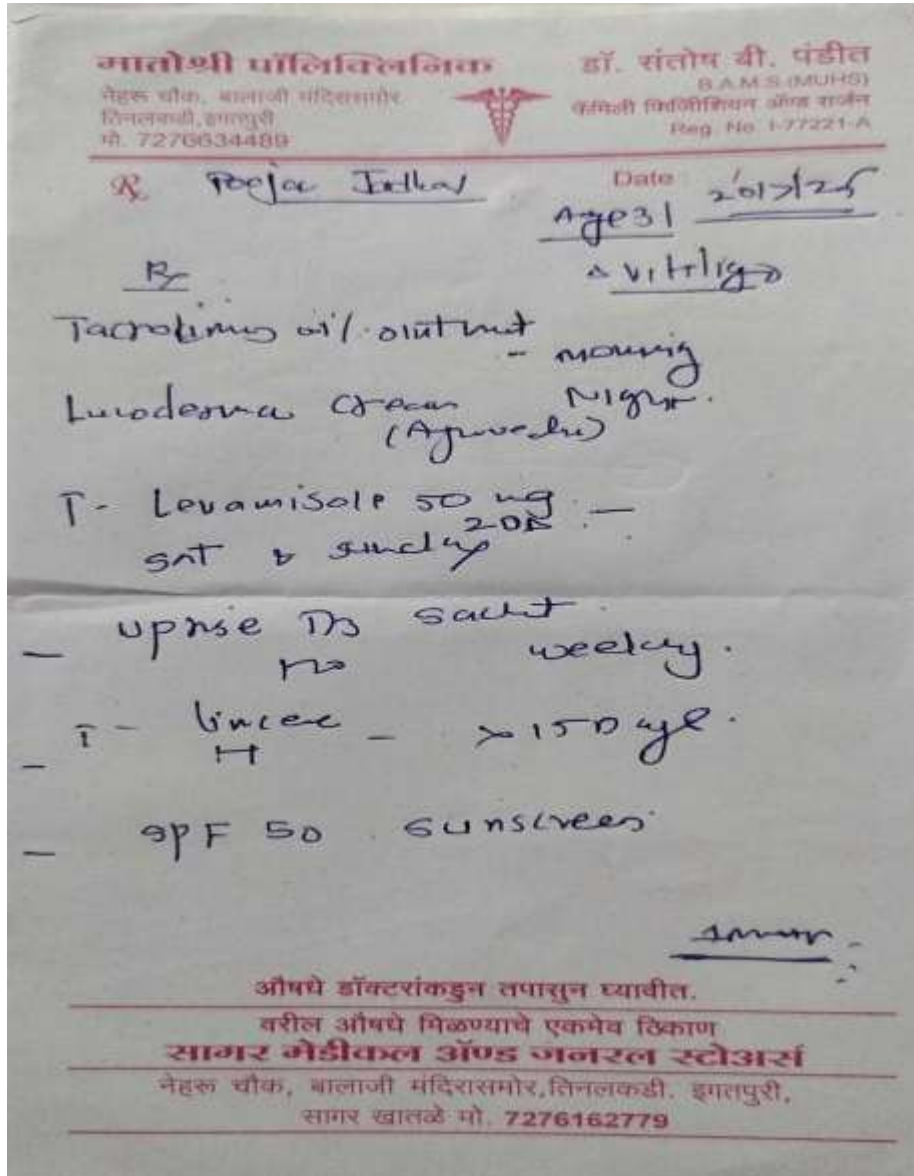 मातोश्री पॉलिक्लिनिक
नेहरू चौक, बालाजी मंदिरासमोर
तिनलकडी, इगतपुरी
मो. 7276634489
डॉ. संतोष बी. पंडीत
B.A.M.S (MUHS)
फॅमिली फिजिशियन ॲण्ड सर्जन
Reg. No. I-77221-A
Rx
Date
Age 31
Rx
Δ vitiligo
Tacrolimus ointment
- morning
cream Night.
T- Levamisole 50 mg
sat & sunday
- uprise D3 sachet
weekly.
- T - limcee - x 15 Days.
- SPF 50 sunscreen
औषधे डॉक्टरांकडुन तपासुन घ्यावीत.
वरील औषधे मिळण्याचे एकमेव ठिकाण
सागर मेडीकल ॲण्ड जनरल स्टोअर्स
नेहरू चौक, बालाजी मंदिरासमोर, तिनलकडी. इगतपुरी,
सागर खातळे मो. 7276162779